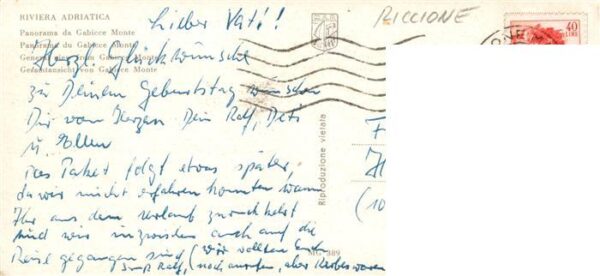 RIVIERA ADRIATICA
Panorama da Gabicce Monte
Panorama du Gabicce Monte
General view from Gabicce Monte
Gesamtansicht von Gabicce Monte
Lieber Vati!
RICCIONE
40
LIRE
Herzl. Glückwünsche
zu Deinem Geburtstag wünschen
Dir von Herzen Dein Ralf, Deti
u. Ellen
Das Paket folgt etwas später,
da wir nicht erfahren konnten wann
Ihr aus dem Urlaub zurückkehrt
sind wir inzwischen auch auf die
Reise gegangen sind (wir wollten Euch
Gruß Ralf, noch anrufen, aber
Riproduzione vietata
MG 389
F
(10